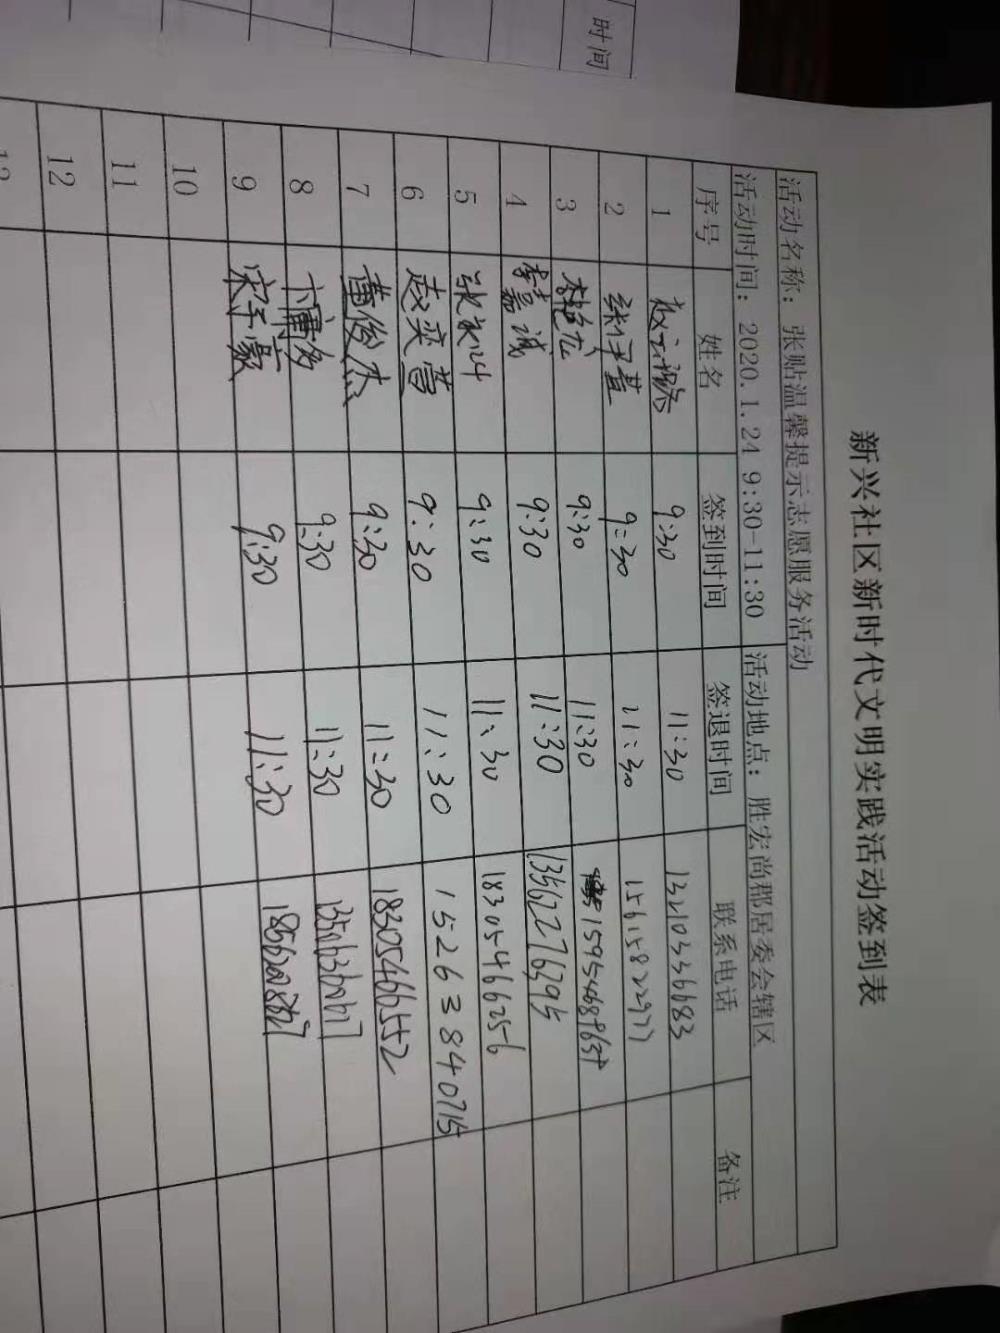 时间
新兴社区新时代文明实践活动签到表
活动名称：张贴温馨提示志愿服务活动
活动时间：2020.1.24 9:30-11:30 活动地点：胜宏尚郡居委会辖区
序号 姓名 签到时间 签退时间 联系电话 备注
1 9:30 11:30 13210336683
2 9:30 11:30 15615822977
3 9:30 11:30
4 李嘉诚 9:30 11:30 13562776395
5 9:30 11:30 18305466256
6 赵奕萱 9:30 11:30 15263840715
7 董俊杰 9:30 11:30 18305466552
8 9:30 11:30
9 宋子豪 9:30 11:30
10
11
12